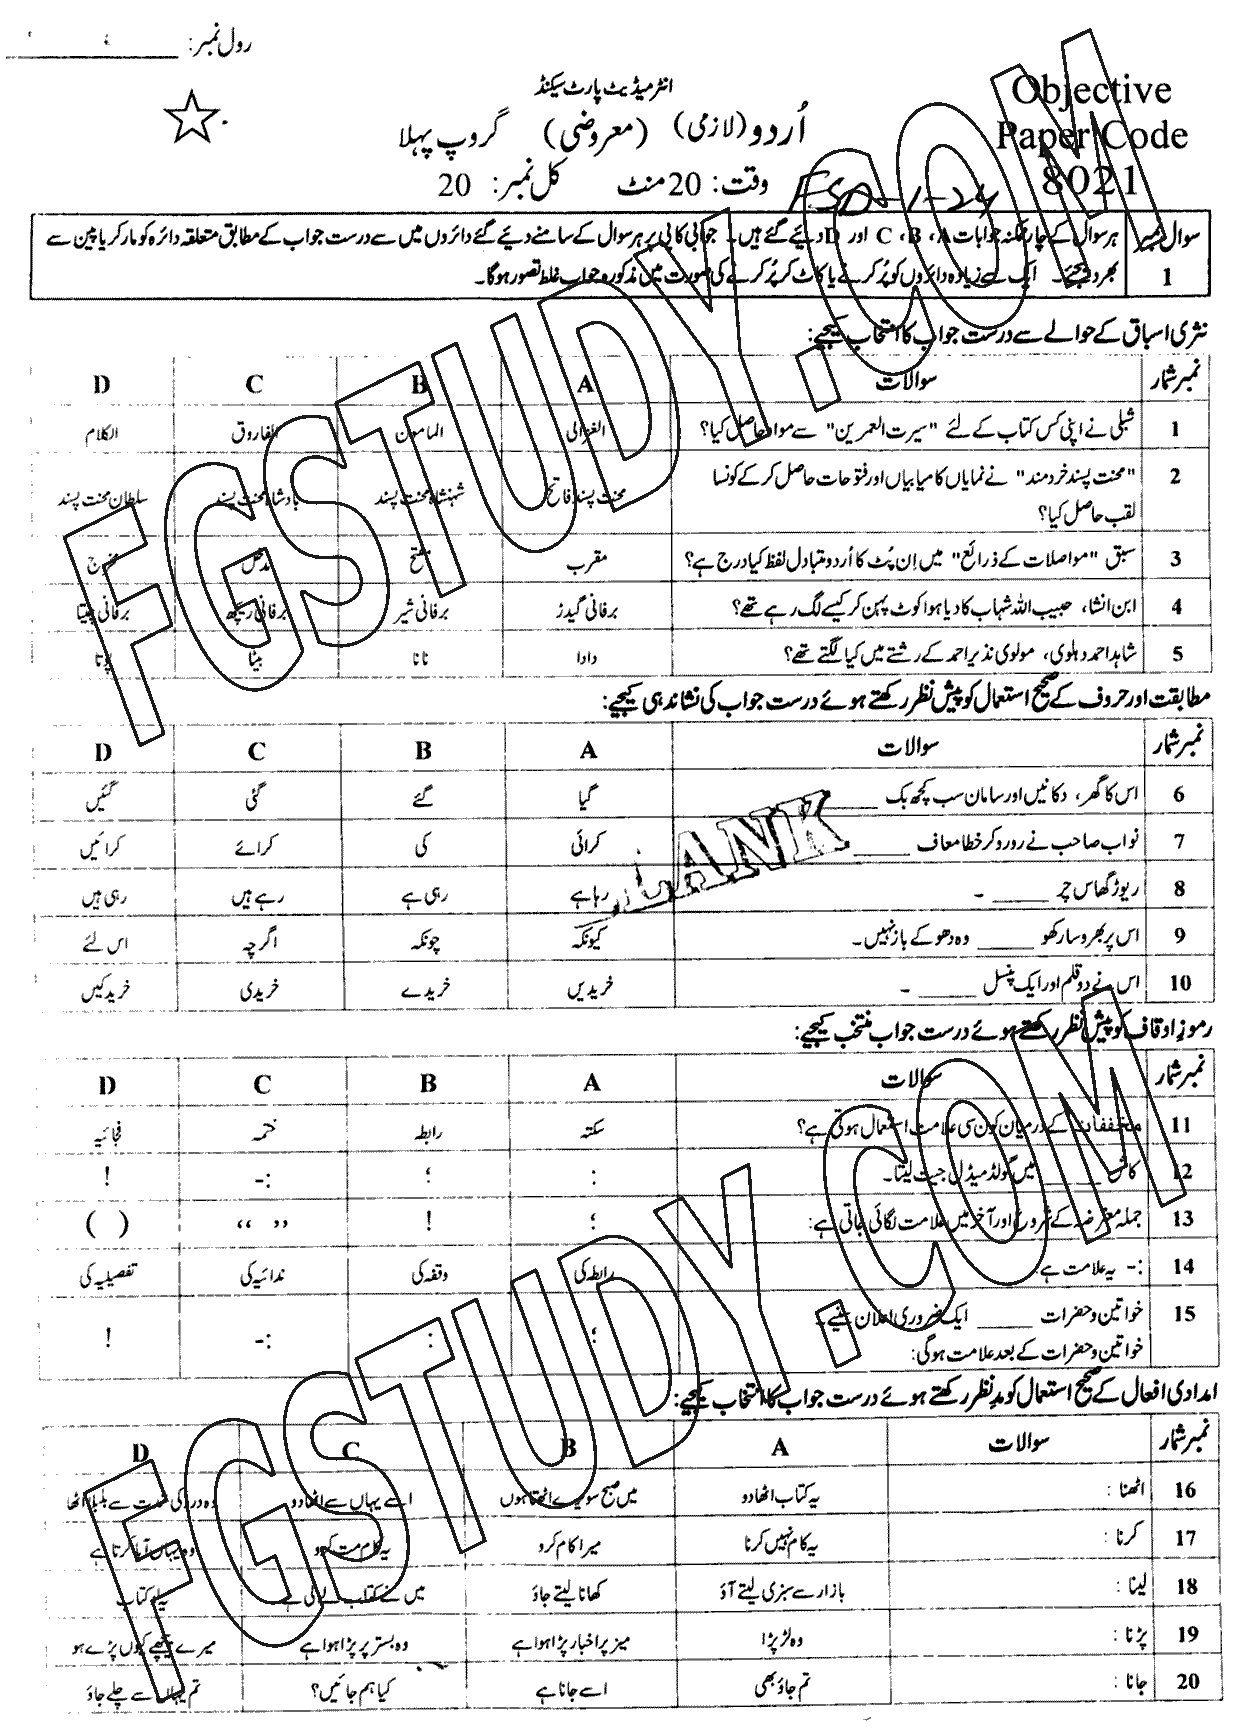 رول نمبر: ________
Objective
Paper Code
8021
انٹرمیڈیٹ پارٹ سیکنڈ
اُردو (لازمی) (معروضی) گروپ پہلا
وقت: 20 منٹ کل نمبر: 20
FSD-1-24
سوال نمبر 1
ہر سوال کے چار ممکنہ جوابات A، B، C اور D دیئے گئے ہیں۔ جوابی کاپی پر ہر سوال کے سامنے دیئے گئے دائروں میں سے درست جواب کے مطابق متعلقہ دائرہ کو مارکر یا پین سے
بھر دیجئے۔ ایک سے زیادہ دائروں کو پُر کرنے یا کاٹ کر پُر کرنے کی صورت میں مذکورہ جواب غلط تصور ہوگا۔
نثری اسباق کے حوالے سے درست جواب کا انتخاب کیجیے:
نمبر شمار سوالات A B C D
1 شبلی نے اپنی کس کتاب کے لئے "سیرت العمرین" سے مواد حاصل کیا؟ الغزالی المامون الفاروق الکلام
2 "محنت پسند خردمند" نے نمایاں کامیابیاں اور فتوحات حاصل کر کے کونسا
لقب حاصل کیا؟ محنت پسند فاتح شہنشاہ محنت پسند بادشاہ محنت پسند سلطان محنت پسند
3 سبق "مواصلات کے ذرائع" میں اِن پُٹ کا اُردو متبادل لفظ کیا درج ہے؟ مقرب مدخل مخرج
4 ابن انشا، حبیب اللہ شہاب کا دیا ہوا کوٹ پہن کر کیسے لگ رہے تھے؟ برفانی گیدڑ برفانی شیر برفانی ریچھ برفانی چیتا
5 شاہد احمد دہلوی، مولوی نذیر احمد کے رشتے میں کیا لگتے تھے؟ دادا نانا بیٹا پوتا
مطابقت اور حروف کے صحیح استعمال کو پیش نظر رکھتے ہوئے درست جواب کی نشاندہی کیجیے:
نمبر شمار سوالات A B C D
6 اس کا گھر، دکانیں اور سامان سب کچھ بک ______ گیا گئے گئی گئیں
7 نواب صاحب نے رو رو کر خطا معاف ______ کرائی کی کرائے کرائیں
8 ریوڑ گھاس چر ______ ۔ رہا ہے رہی ہے رہے ہیں رہی ہیں
9 اس پر بھروسا رکھو ______ وہ دھوکے باز نہیں۔ کیونکہ چونکہ اگرچہ اس لئے
10 اس نے دو قلم اور ایک پنسل ______ ۔ خریدیں خریدے خریدی خرید کیں
رموزِ اوقاف کو پیش نظر رکھتے ہوئے درست جواب منتخب کیجیے:
نمبر شمار سوالات A B C D
11 مخففات کے درمیان کون سی علامت استعمال ہوتی ہے؟ سکتہ رابطہ ختمہ فجائیہ
12 کاش ______ میں گولڈ میڈل جیت لیتا۔ : ؛ :- !
13 جملہ معترضہ کے شروع اور آخر میں علامت لگائی جاتی ہے: ؛ ! “ ” ( )
14 :- یہ علامت ہے: رابطہ کی وقفہ کی ندائیہ کی تفصیلیہ کی
15 خواتین و حضرات ______ ایک ضروری اعلان سنیے۔
خواتین و حضرات کے بعد علامت ہوگی: ؛ : :- !
امدادی افعال کے صحیح استعمال کو مدِنظر رکھتے ہوئے درست جواب کا انتخاب کیجیے:
نمبر شمار سوالات A B C D
16 اٹھنا: یہ کتاب اٹھا دو میں صبح سویرے اٹھتا ہوں اسے یہاں سے اٹھا دو وہ درد کی شدت سے بلبلا اٹھا
17 کرنا: یہ کام نہیں کرنا میرا کام کرو یہ کام مت کرو وہ یہاں آیا کرتا ہے
18 لینا: بازار سے سبزی لیتے آؤ کھانا لیتے جاؤ میں نے کتاب لے لی ہے کتاب
19 پڑنا: وہ لڑ پڑا میز پر اخبار پڑا ہوا ہے وہ بستر پر پڑا ہوا ہے میرے پیچھے کیوں پڑے ہو
20 جانا: تم جاؤ بھی اسے جانا ہے کیا ہم جائیں؟ تم یہاں سے چلے جاؤ
FGSTUDY.COM
FGSTUDY.COM